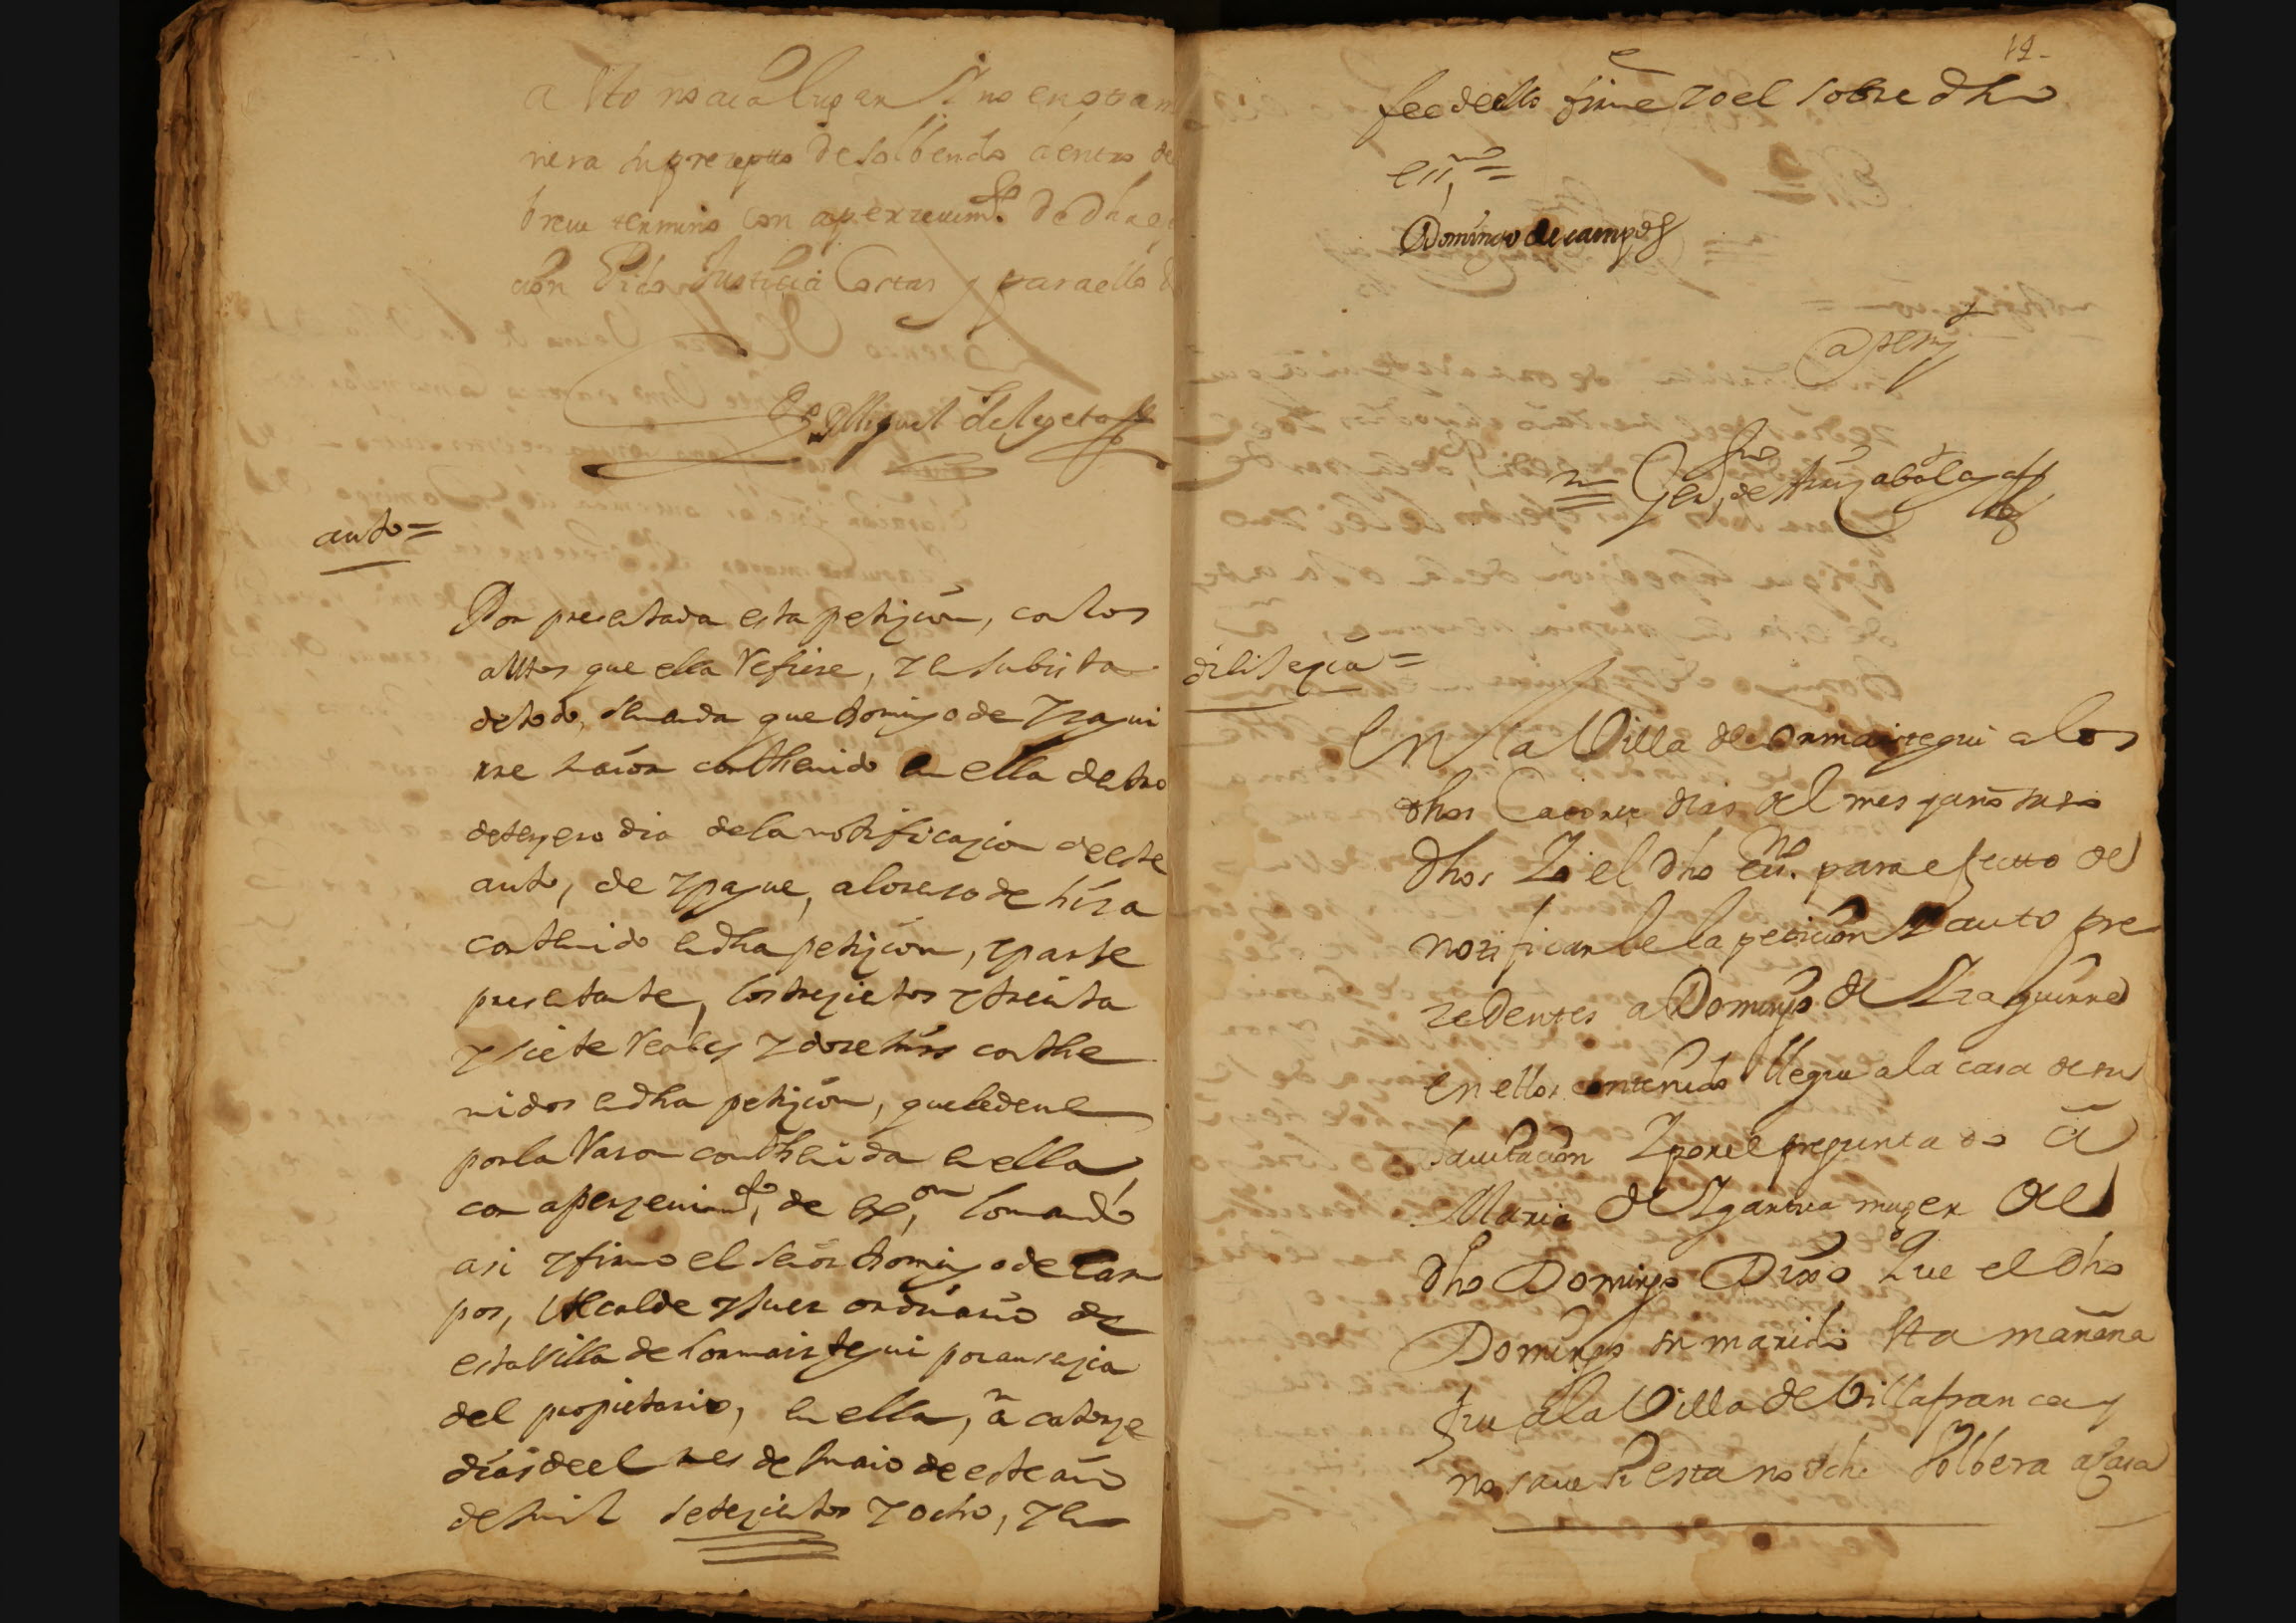 a esto no aia lugar Sino en otra ma
nera su precepto de solbendo dentro de
breue termino con aperzeuimto. de dha
cion Pido Justicia Costas y para ello
Miguel de
auto =
Por presentada esta petiçion, con los
autos que ella Refiere, y en su bista
de todo, Manda que Domingo de Yzagui
rre maior conthenido en ella dentro
de terzero dia de la notificazion de este
auto, de y pague, a lorenso de
contenido en dha petiçion, y parte
presentante, los trezientos y treinta
y siete Reales y doze mrs conthe
nidos en dha petiçion, que le deue
por la Rason conthenida en ella,
con aperzeuimto, de exon, lo mando
asi y firmo el señor Domingo de Cam
pos, Alcalde y Juez ordinario de
esta Villa de hormaiztegui por ausençia
del propietario, en ella, a catorze
dias de el mes de Maio de este año
de mil setezientos y ocho, y en
12
fee de ello firme yo el sobre dho
essno =
Domingo de campos
ante my
diligençia =
En la Villa de Ormaiztegui a los
dhos Catorze dias del mes y año suso
dhos Yo el dho essno. para efectto de
notificarle la peticion y auto pre
zedentes a Domingo de Yzaguirre
en ellos contenido llegue a la casa de su
hauitacion Y por el preguntado a
Maria de Ygartua muger del
dho Domingo Dixo Que el dho
Domingo su marido esta mañana
fue a la Villa de Villafranca y
no saue si esta nochee bolbera a Casa